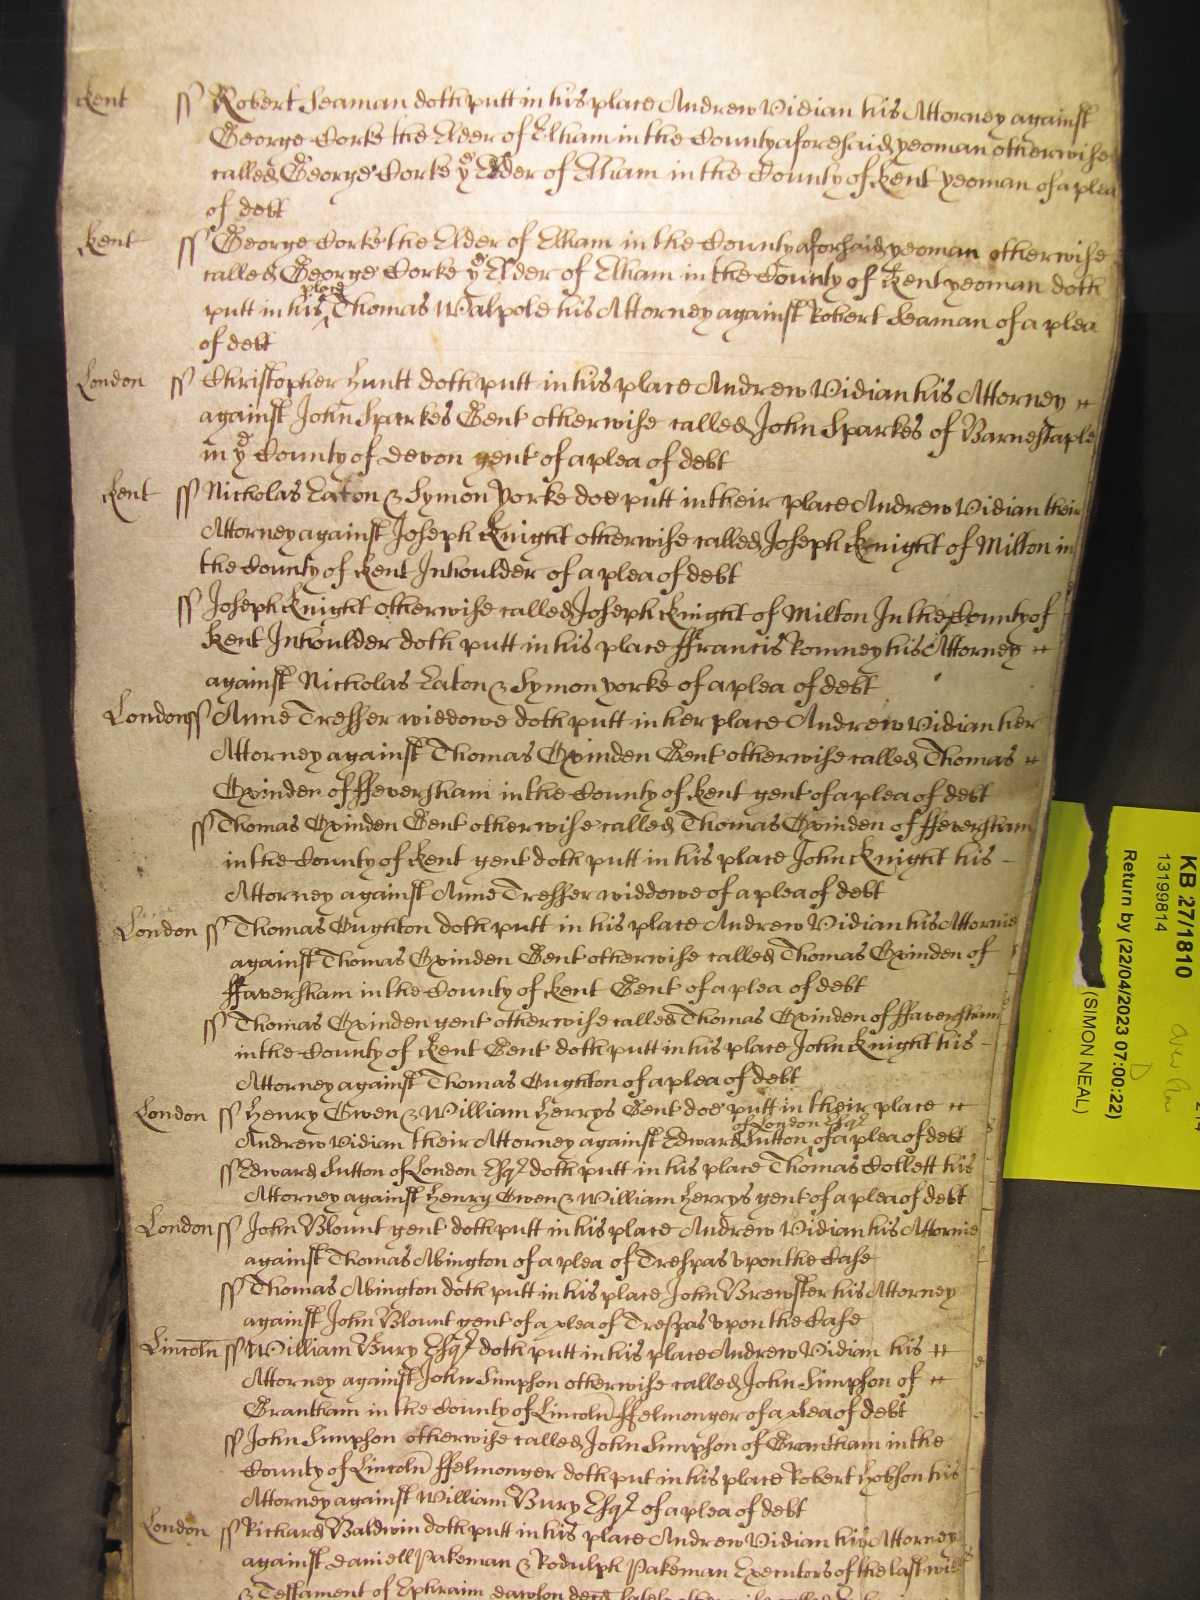 Kent ss Robert Seaman doth putt in his place Andrew Vidian his Attorney against
George Corke the Elder of Elham in the County aforesaid yeoman otherwise
called George Corke ye Elder of Elham in the County of Kent yeoman of a plea
of debt
Kent ss George Corke the Elder of Elham in the County aforsaid yeoman otherwise
called George Corke ye Elder of Elham in the County of Kent yeoman doth
place
putt in his ^ Thomas Walpole his Attorney against Robert Seaman of a plea
of debt
London ss Christopher Huntt doth putt in his place Andrew Vidian his Attorney
against John Sparkes Gent otherwise called John Sparkes of Barnestaple
in ye County of Devon gent of a plea of debt
Kent ss Nicholas Eaton & Symon Yorke doe putt in their place Andrew Vidian their
Attorney against Joseph Knight otherwise called Joseph Knight of Milton in
the County of Kent Inhoulder of a plea of debt
ss Joseph Knight otherwise called Joseph Knight of Milton In the County of
Kent Inhoulder doth putt in his place ffrancis Romney his Attorney
against Nicholas Eaton & Symon yorke of a plea of debt
London ss Anne Tresser widdowe doth putt in her place Andrew Vidian her
Attorney against Thomas Oxinden Gent otherwise called Thomas
Oxinden of ffeversham in the County of Kent gent of a plea of debt
ss Thomas Oxinden Gent otherwise called Thomas Oxinden of ffeversham
in the County of Kent gent doth putt in his place John Knight his
Attorney against Anne Tresser widdowe of a plea of debt
London ss Thomas Oughton doth putt in his place Andrew Vidian his Attornie
against Thomas Oxinden Gent otherwise called Thomas Oxinden of
ffaversham in the County of Kent Gent of a plea of debt
ss Thomas Oxinden gent otherwise called Thomas Oxinden of ffaversham
in the County of Kent Gent doth putt in his place John Knight his
Attorney against Thomas Oughton of a plea of debt
London ss Henry Owen & William Herrys Gent doe putt in their place
of London Esqr
Andrew Vidian their Attorney against Edward Sutton ^ of a plea of debt
ss Edward Sutton of London Esqr doth putt in his place Thomas Collett his
Attorney against Henry Owen & William Herrys gent of a plea of debt
London ss John Blount gent doth putt in his place Andrew Vidian his Attornie
against Thomas Abington of a plea of Trespas upon the Case
ss Thomas Abington doth putt in his place John Brewster his Attorney
against John Blount gent of a plea of Trespas upon the Case
Lincoln ss William Bury Esqr doth putt in his place Andrew Vidian his
Attorney against John Simpson otherwise called John Simpson of
Grantham in the County of Lincoln ffelmonger of a plea of debt
ss John Simpson otherwise called John Simpson of Grantham in the
County of Lincoln ffelmonger doth put in his place Robert Hobson his
Attorney against William Bury Esqr of a plea of debt
London ss Richard Baldwin doth putt in his place Andrew Vidian his Attorney
against Daniell Pakeman & Rodulph Pakeman Executors of the last will
& Testament of Ephraim Dawson decd lately otherwise called
KB 27/1810
13199814
Return by (22/04/2023 07:00:22)
(SIMON NEAL)